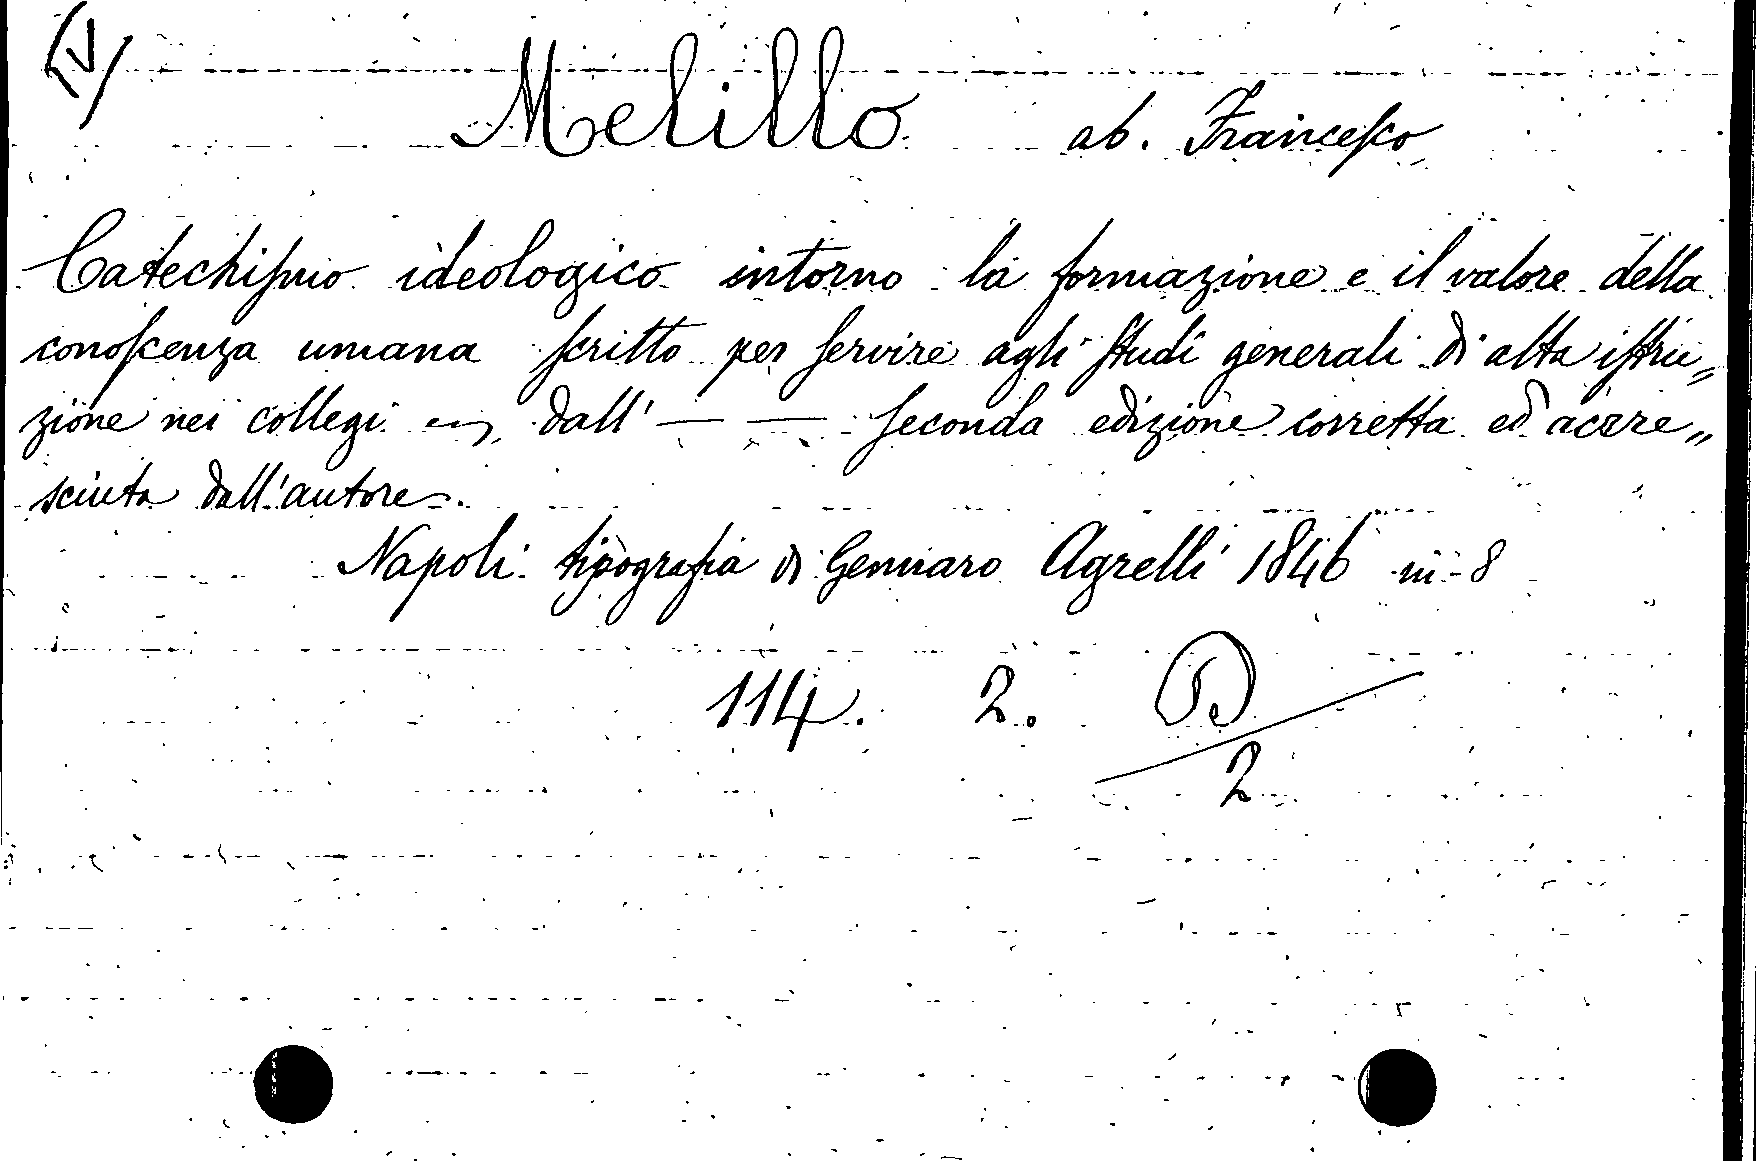 (V)
Melillo ab. Francesco
Catechismo ideologico intorno la formazione e il valore della
conoscenza umana scritto per servire agli studi generali di alta istru„
zione nei collegi dall' — — seconda edizione corretta ed accre„
sciuta dall'autore.
Napoli tipografia di Gennaro Agrelli 1846 in-8
114. 2.
2